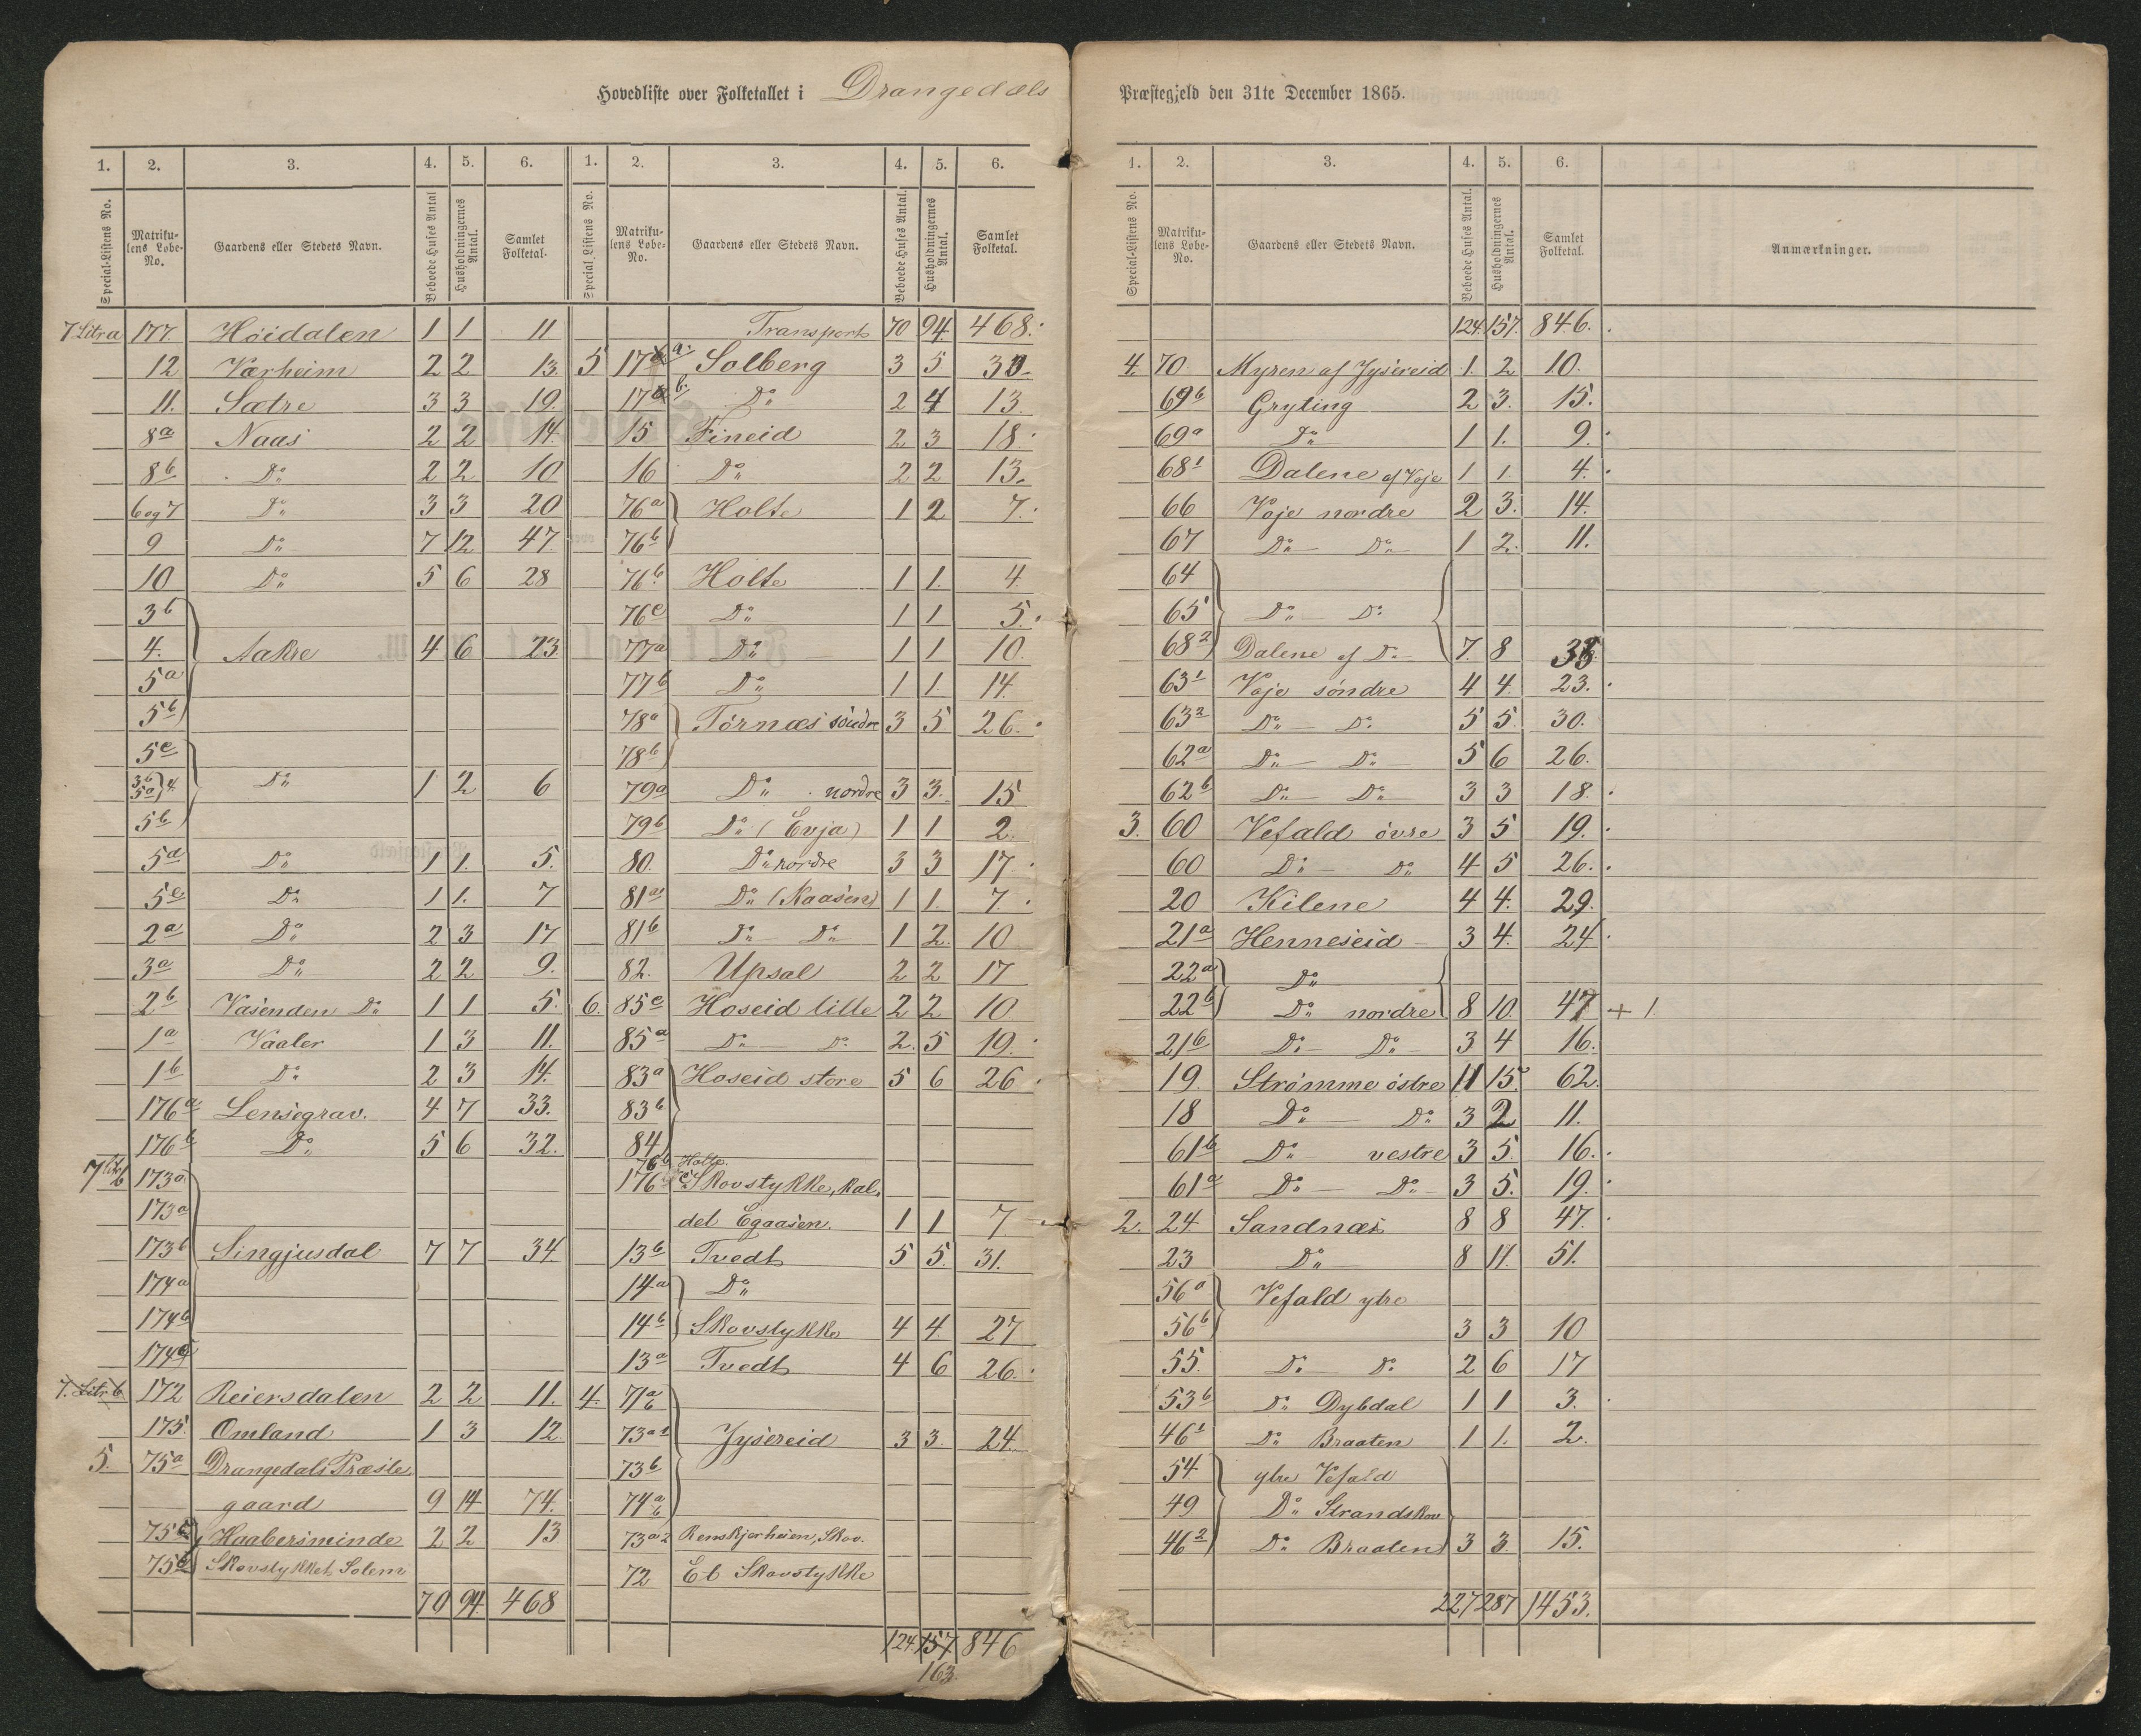 Hovedliste over Folketallet i Drangedals Præstegjeld den 31te December 1865.
1. 2. 3. 4. 5. 6. 1. 2. 3. 4. 5. 6.
Special-Listens No. Matriku-lens Løbe-No. Gaardens eller Stedets Navn. Beboede Huses Antal Husholdningernes Antal. Samlet Folketal. Special Listens No. Matriku-lens Løbe-No. Gaardens eller Stedets Navn. Beboede Huses Antal. Husholdningernes Antal. Samlet Folketal.
7 Litra 177. Høidalen 1 1 11
12 Værheim 2 2 13
11. Sætre 3 3 19.
8a Naas 2 2 14
8b Do 2 2 10
6 og 7 Do 3 3 20
9 Do 7 12 47
10 Do 5 6 28
3b
4. Aakre 4 6 23
5a
5b
5c
3b 5a } 4 Do 1 2 6
5b
5d Do 1 1. 5.
5e Do 1 1. 7
2a Do 2 3 17
3a Do 2 2 9.
2b Vasenden Do 1 1 5.
1a Vaaler 1 3 11.
1b Do 2 3 14.
176a Lensegrav. 4 7 33.
176b Do 5 6 32.
7 Litr b 173a
173a
173b Singjusdal 7 7 34.
174a
174b
174c
7. Litr b 172 Reiersdalen 2 2 11.
175. Omland 1 3 12.
5. 75a Drangedals Præste
gaard 9 14 74.
75b Haabersminde 2 2 13
75c Skovstykket Solem
70 94 468
Transport 70 94 468.
5 17a Solberg 3 5 30.
17b Do 2 4 13.
15 Fineid 2 3 18.
16 Do 2 2 13.
76a Holte 1 2 7.
76b
76b Holte 1 1. 4.
76c Do 1 1 5.
77a Do 1 1 10.
77b Do 1 1. 14.
78a Tørnæs søndre 3 5 26.
78b
79a Do nordre 3 3. 15
79b Do (Evja) 1 1 2.
80. Do nordre 3 3 17.
81a Do (Naasen) 1 1. 7.
81b Do Do 1 2. 10
82. Upsal 2 2 17
6. 85c Hoseid lille 2 2 10
85a Do Do 2. 5 19.
83a Hoseid store 5 6 26
83b
84
76b Holte.
176c Skovstykke, kal-
det Egaasen. 1 1 7.
13b Tvedt 5 5. 31.
14a Do
14b Skovstykke 4 4. 27
13a Tvedt 4 6 26.
4. 71a b
73a1 Jysereid 3 3. 24.
73b
74a b
73a2 Renskjørheien, Skov.
72 Et Skovstykke
124. 157 846
163.
1. 2. 3. 4. 5. 6.
Special-Listens No. Matriku-lens Løbe-No. Gaardens eller Stedets Navn. Beboede Huses Antal. Husholdningernes Antal. Samlet Folketal. Anmærkninger.
124. 157. 846.
4. 70 Myren af Jysereid 1. 2 10.
69b Gryting 2 3. 15.
69a Do 1 1. 9.
68¹ Dalene af Voje 1 1. 4.
66 Voje nordre 2 3. 14.
67 Do Do 1 2. 11.
64
65 Do Do
68² Dalene af Do 7. 8
63¹ Voje søndre 4 4. 23.
63² Do Do 5 5. 30.
62a Do Do 5 6 26.
62b Do Do 3 3 18.
3. 60 Vefald øvre 3 5 19.
60 Do Do 4 5 26.
20 Kilene 4 4. 29.
21a Henneseid 3 4. 24.
22a Do
22b Do nordre 8 10. 47 + 1.
21b Do Do 3 4 16.
19. Strømme østre 11 15. 62.
18 Do Do 3 2 11.
61b Do vestre 3 5. 16.
61a Do Do 3 5. 19.
2. 24 Sandnæs 8 8 47.
23 Do 8 11. 51.
56a Vefald ytre
56b 3 3 10
55. Do Do 2 6 17
53b Do Dybdal 1 1 3.
46¹ Do Braaten 1 1. 2.
54 ytre Vefald
49 Do Strandskov
46² Do Braaten 3 3. 15.
227 287 1453.